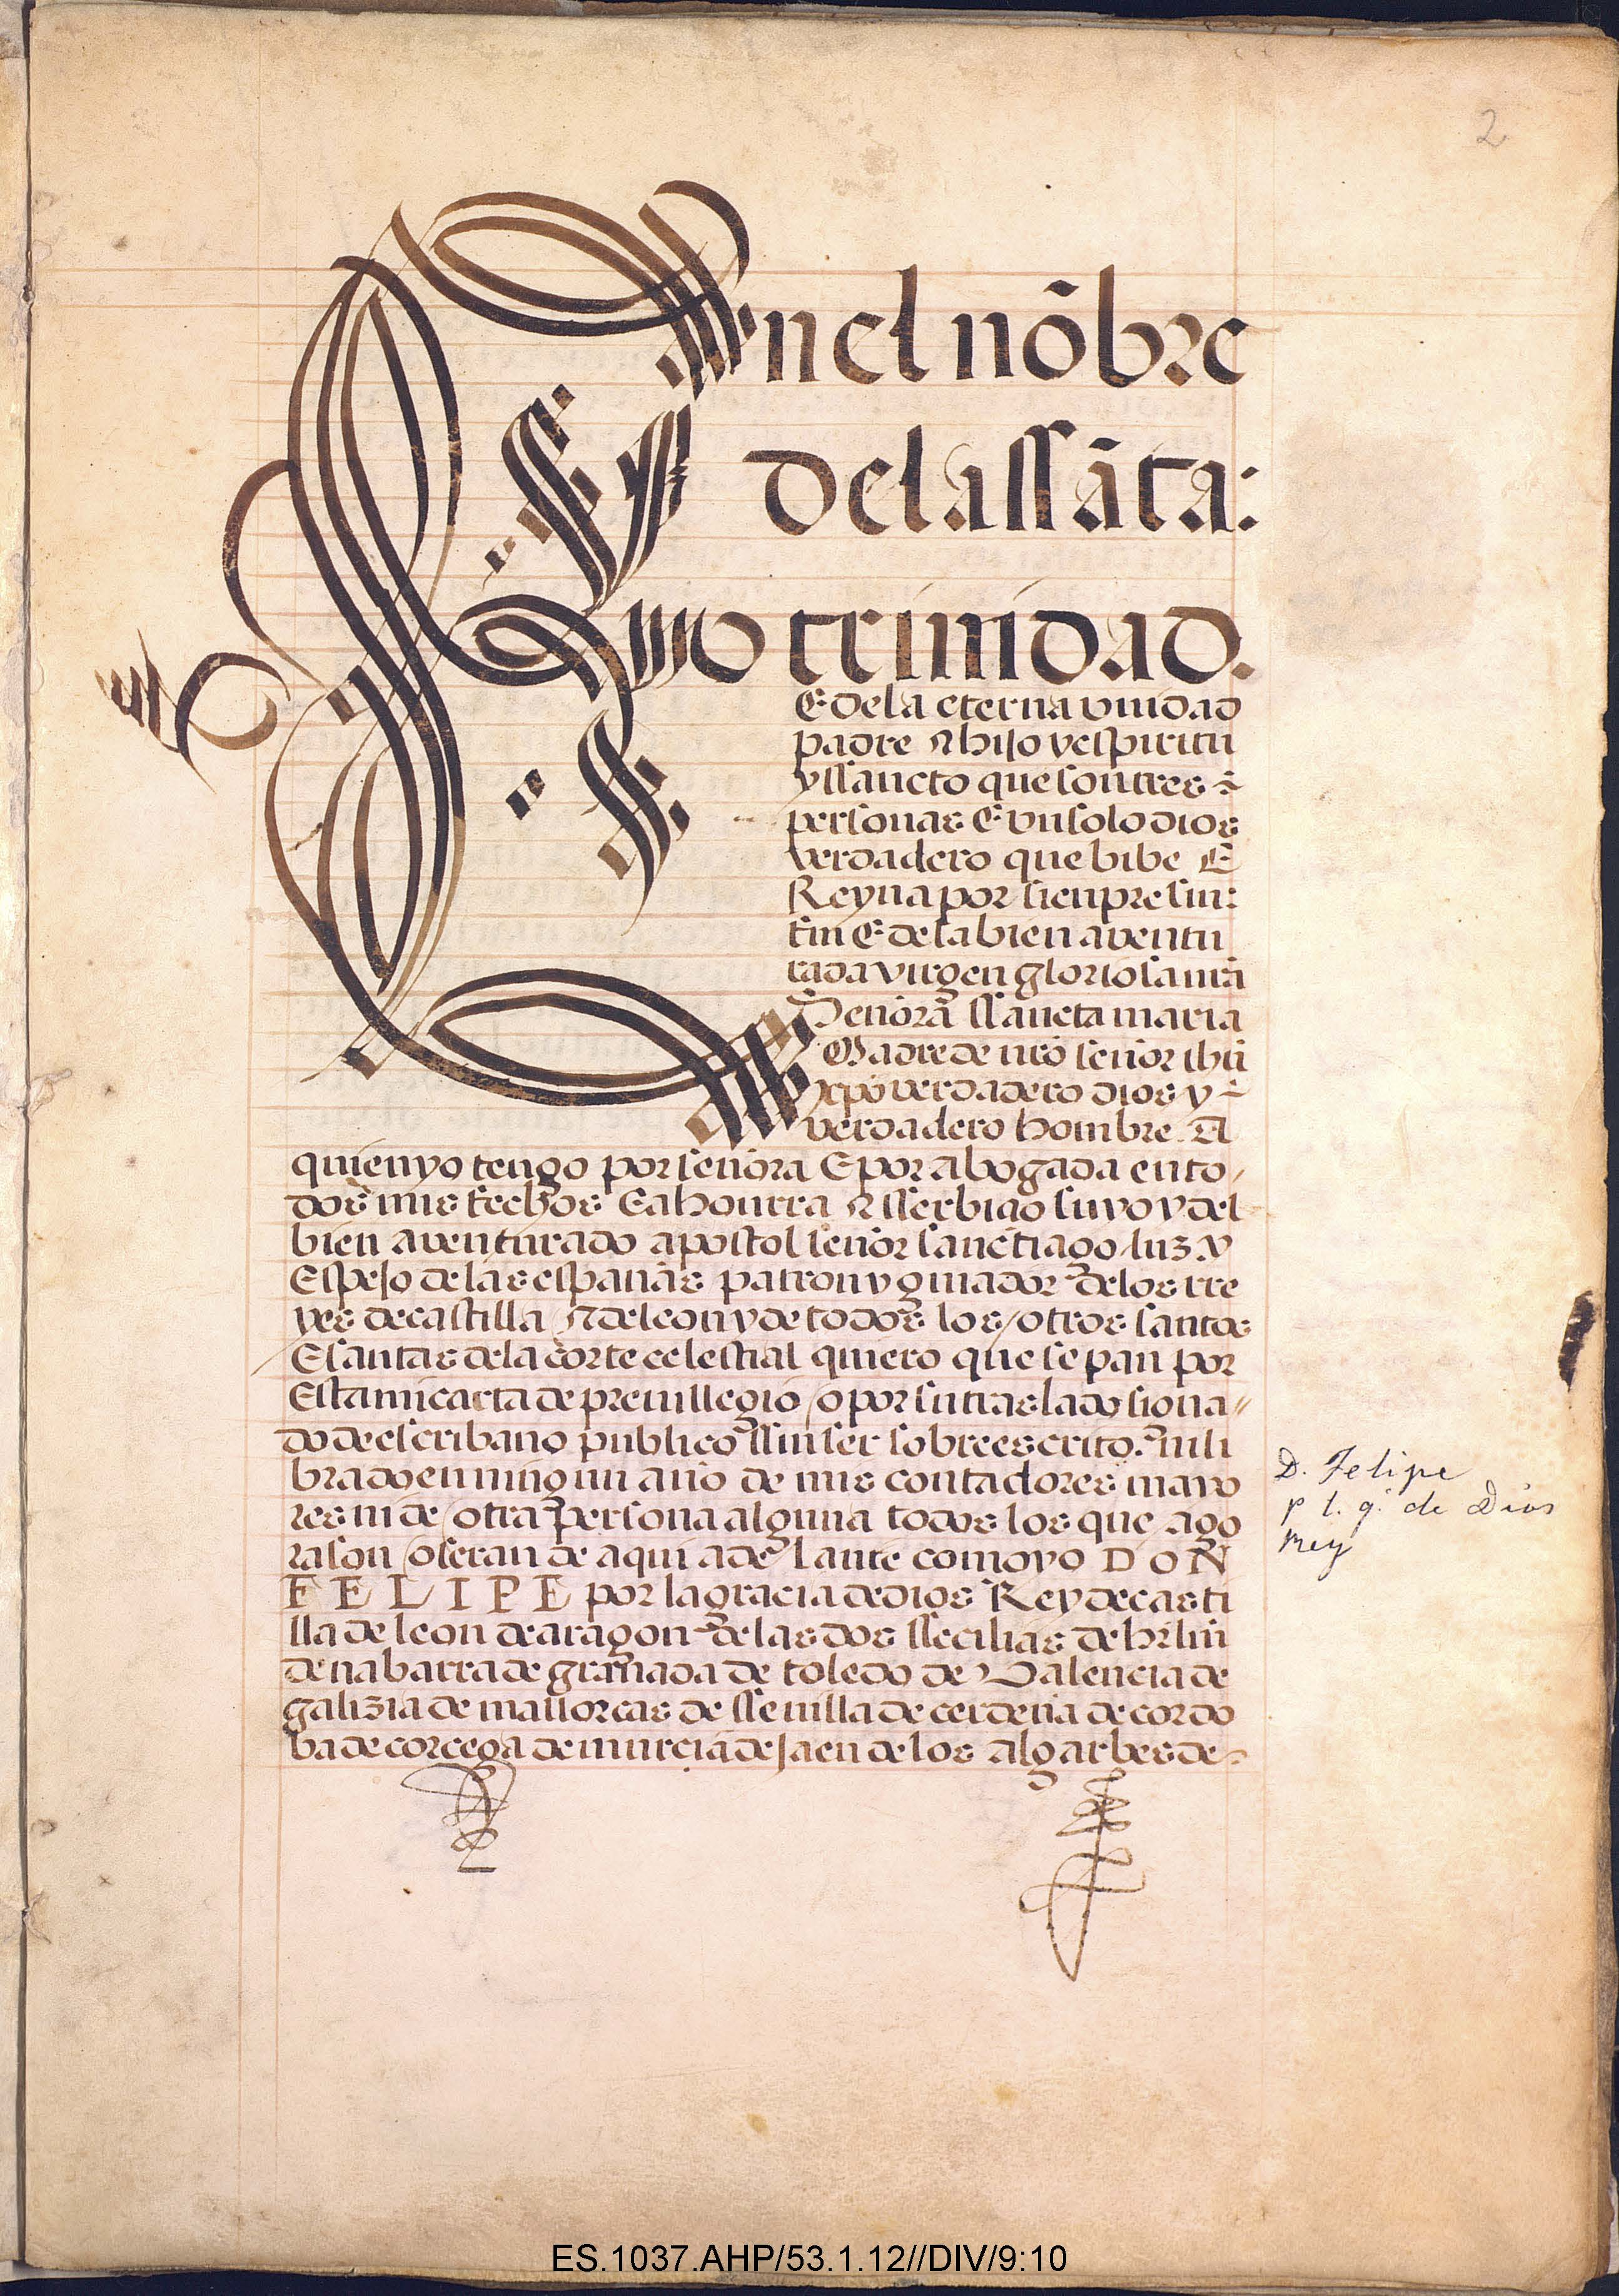 2
En el nõbre
de la ssãta:
trinidad.
E de la eterna vnidad
padre ⁊ hijo y espiritu
yssancto que son tres
personas E vn solo dios
verdadero que bibe E
Reyna por sienpre sin:
fin E de la bien aventu
rada virgen gloriosa nr̃a
Señora ssancta maria
Madre de nr̃o señor ihũ
xpõ verdadero dios y
verdadero hombre A
quien yo tengo por señora E por abogada en to
dos mis fechos E a honrra ⁊ sserbiçio suyo y del
bien aventurado apostol señor sanctiago luz y
Espejo de las españas patron y guiador de los rre
yes de castilla ⁊ de leon y de todos los otros santos
E santas de la corte celestial quiero que sepan por
Esta mi carta de preuillegio o por su traslado signa
do de escribano publico ssin ser sobreescrito ni li
brado en ningun año de mis contadores mayo
res ni de otra persona alguna todos los que ago
ra son o seran de aqui adelante como yo DON
FELIPE por la gracia de dios Rey de casti
lla de leon de aragon de las dos ssecilias de hr̃lm̃
de nabarra de granada de toledo de Valencia de
galizia de mallorcas de sseuilla de cerdeña de cordo
ba de corcega de murcia de jaen de los algarbes de
D. Felipe
p l. g. de Dios
Rey
ES.1037.AHP/53.1.12//DIV/9:10